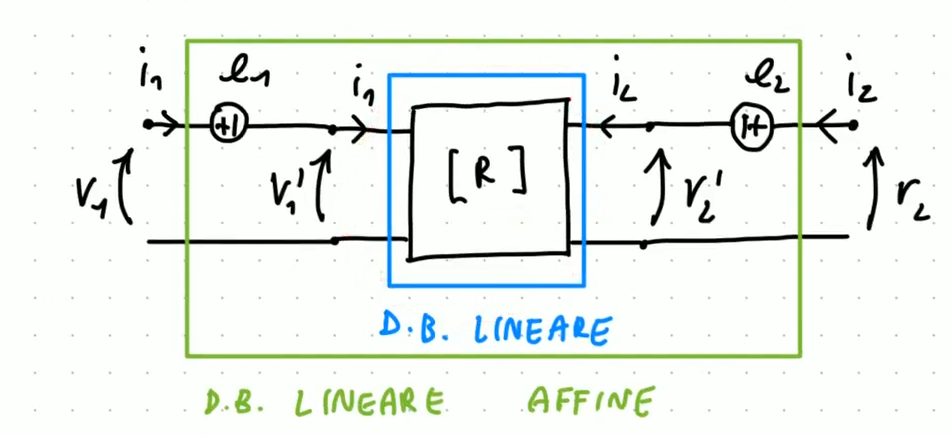 i₁ e₁ i₁ i₂ e₂ i₂
+| |+
v₁ v₁' [R] v₂' v₂
D.B. LINEARE
D.B. LINEARE AFFINE